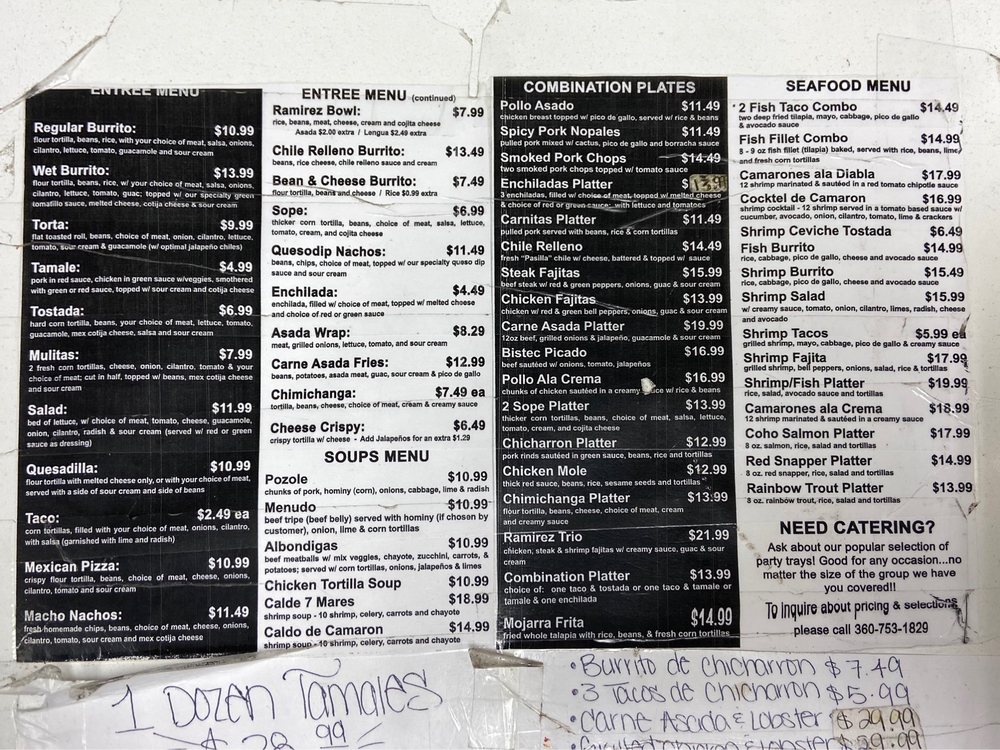 ENTREE MENU
Regular Burrito: $10.99
flour tortilla, beans, rice, with your choice of meat, salsa, onions,
cilantro, lettuce, tomato, guacamole and sour cream
Wet Burrito: $13.99
flour tortilla, beans, rice, w/ your choice of meat, salsa, onions,
cilantro, lettuce, tomato, guac; topped w/ our specialty green
tomatillo sauce, melted cheese, cotija cheese & sour cream
Torta: $9.99
flat toasted roll, beans, choice of meat, onion, cilantro, lettuce,
tomato, sour cream & guacamole (w/ optimal jalapeño chiles)
Tamale: $4.99
pork in red sauce, chicken in green sauce w/veggies, smothered
with green or red sauce, topped w/ sour cream and cotija cheese
Tostada: $6.99
hard corn tortilla, beans, your choice of meat, lettuce, tomato,
guacamole, mex cotija cheese, salsa and sour cream
Mulitas: $7.99
2 fresh corn tortillas, cheese, onion, cilantro, tomato & your
choice of meat; cut in half, topped w/ beans, mex cotija cheese
and sour cream
Salad: $11.99
bed of lettuce, w/ choice of meat, tomato, cheese, guacamole,
onion, cilantro, radish & sour cream (served w/ red or green
sauce as dressing)
Quesadilla: $10.99
flour tortilla with melted cheese only, or with your choice of meat,
served with a side of sour cream and side of beans
Taco: $2.49 ea
corn tortillas, filled with your choice of meat, onions, cilantro,
with salsa (garnished with lime and radish)
Mexican Pizza: $10.99
crispy flour tortilla, beans, choice of meat, cheese, onions,
cilantro, tomato and sour cream
Macho Nachos: $11.49
fresh homemade chips, beans, choice of meat, cheese, onions,
cilantro, tomato, sour cream and mex cotija cheese
ENTREE MENU (continued)
Ramirez Bowl: $7.99
rice, beans, meat, cheese, cream and cojita cheese
Asada $2.00 extra / Lengua $2.49 extra
Chile Relleno Burrito: $13.49
beans, rice cheese, chile relleno sauce and cream
Bean & Cheese Burrito: $7.49
flour tortilla, beans and cheese / Rice $0.99 extra
Sope: $6.99
thicker corn tortilla, beans, choice of meat, salsa, lettuce,
tomato, cream, and cojita cheese
Quesodip Nachos: $11.49
beans, chips, choice of meat, topped w/ our specialty queso dip
sauce and sour cream
Enchilada: $4.49
enchilada, filled w/ choice of meat, topped w/ melted cheese
and choice of red or green sauce
Asada Wrap: $8.29
meat, grilled onions, lettuce, tomato, and sour cream
Carne Asada Fries: $12.99
beans, potatoes, asada meat, guac, sour cream & pico de gallo
Chimichanga: $7.49 ea
tortilla, beans, cheese, choice of meat, cream & creamy sauce
Cheese Crispy: $6.49
crispy tortilla w/ cheese - Add Jalapeños for an extra $1.29
SOUPS MENU
Pozole $10.99
chunks of pork, hominy (corn), onions, cabbage, lime & radish
Menudo $10.99
beef tripe (beef belly) served with hominy (if chosen by
customer), onion, lime & corn tortillas
Albondigas $10.99
beef meatballs w/ mix veggies, chayote, zucchini, carrots, &
potatoes; served w/ corn tortillas, onions, jalapeños & limes
Chicken Tortilla Soup $10.99
Calde 7 Mares $18.99
shrimp soup - 10 shrimp, celery, carrots and chayote
Caldo de Camaron $14.99
shrimp soup - 10 shrimp, celery, carrots and chayote
COMBINATION PLATES
Pollo Asado $11.49
chicken breast topped w/ pico de gallo, served w/ rice & beans
Spicy Pork Nopales $11.49
pulled pork mixed w/ cactus, pico de gallo and borracha sauce
Smoked Pork Chops $14.49
two smoked pork chops topped w/ tomato sauce
Enchiladas Platter $13.99
3 enchiladas, filled w/ choice of meat, topped w/ melted cheese
& choice of red or green sauce; with lettuce and tomatoes
Carnitas Platter $11.49
pulled pork served w/ beans, rice & corn tortillas
Chile Relleno $14.49
fresh "Pasilla" chile w/ cheese, battered & topped w/ sauce
Steak Fajitas $15.99
beef steak w/ red & green peppers, onions, guac & sour cream
Chicken Fajitas $13.99
chicken w/ red & green bell peppers, onions, guac & sour cream
Carne Asada Platter $19.99
12oz beef, grilled onions & jalapeño, guacamole & sour cream
Bistec Picado $16.99
beef sautéed w/ onions, tomato, jalapeños
Pollo Ala Crema $16.99
chunks of chicken sautéed in a creamy sauce w/ rice & beans
2 Sope Platter $13.99
thicker corn tortillas, beans, choice of meat, salsa, lettuce,
tomato, cream, and cojita cheese
Chicharron Platter $12.99
pork rinds sautéed in green sauce, beans, rice & tortillas
Chicken Mole $12.99
thick red sauce, beans, rice, sesame seeds and tortillas
Chimichanga Platter $13.99
flour tortilla, beans, cheese, choice of meat, cream
and creamy sauce
Ramirez Trio $21.99
chicken, steak & shrimp fajitas w/ creamy sauce, guac & sour
cream
Combination Platter $13.99
choice of: one taco & tostada or one taco & tamale or
tamale & one enchilada
Mojarra Frita $14.99
fried whole talapia with rice, beans, & fresh corn tortillas
SEAFOOD MENU
2 Fish Taco Combo $14.49
two deep fried tilapia, mayo, cabbage, pico de gallo
& avocado sauce
Fish Fillet Combo $14.99
8 - 9 oz fish fillet (tilapia) baked, served with rice, beans, lime
and fresh corn tortillas
Camarones ala Diabla $17.99
12 shrimp marinated & sautéed in a red tomato chipotle sauce
Cocktel de Camaron $16.99
shrimp cocktail - 12 shrimp served in a tomato based sauce w/
cucumber, avocado, onion, cilantro, tomato, lime & crackers
Shrimp Ceviche Tostada $6.49
Fish Burrito $14.99
rice, cabbage, pico de gallo, cheese and avocado sauce
Shrimp Burrito $15.49
rice, cabbage, pico de gallo, cheese and avocado sauce
Shrimp Salad $15.99
w/ creamy sauce, tomato, onion, cilantro, limes, radish, cheese
and avocado
Shrimp Tacos $5.99 ea
grilled shrimp, mayo, cabbage, pico de gallo & creamy sauce
Shrimp Fajita $17.99
grilled shrimp, bell peppers, onions, salad, rice & tortillas
Shrimp/Fish Platter $19.99
rice, salad, avocado sauce and tortillas
Camarones ala Crema $18.99
12 shrimp marinated & sautéed in a creamy sauce
Coho Salmon Platter $17.99
8 oz. salmon, rice, salad and tortillas
Red Snapper Platter $14.99
8 oz. red snapper, rice, salad and tortillas
Rainbow Trout Platter $13.99
8 oz. rainbow trout, rice, salad and tortillas
NEED CATERING?
Ask about our popular selection of
party trays! Good for any occasion...no
matter the size of the group we have
you covered!!
To inquire about pricing & selections
please call 360-753-1829
1 Dozen Tamales
$28.99
• Burrito de chicharron $7.49
• 3 Tacos de chicharron $5.99
• Carne Asada & Lobster $29.99
• Grilled chicken & Lobster $29.99